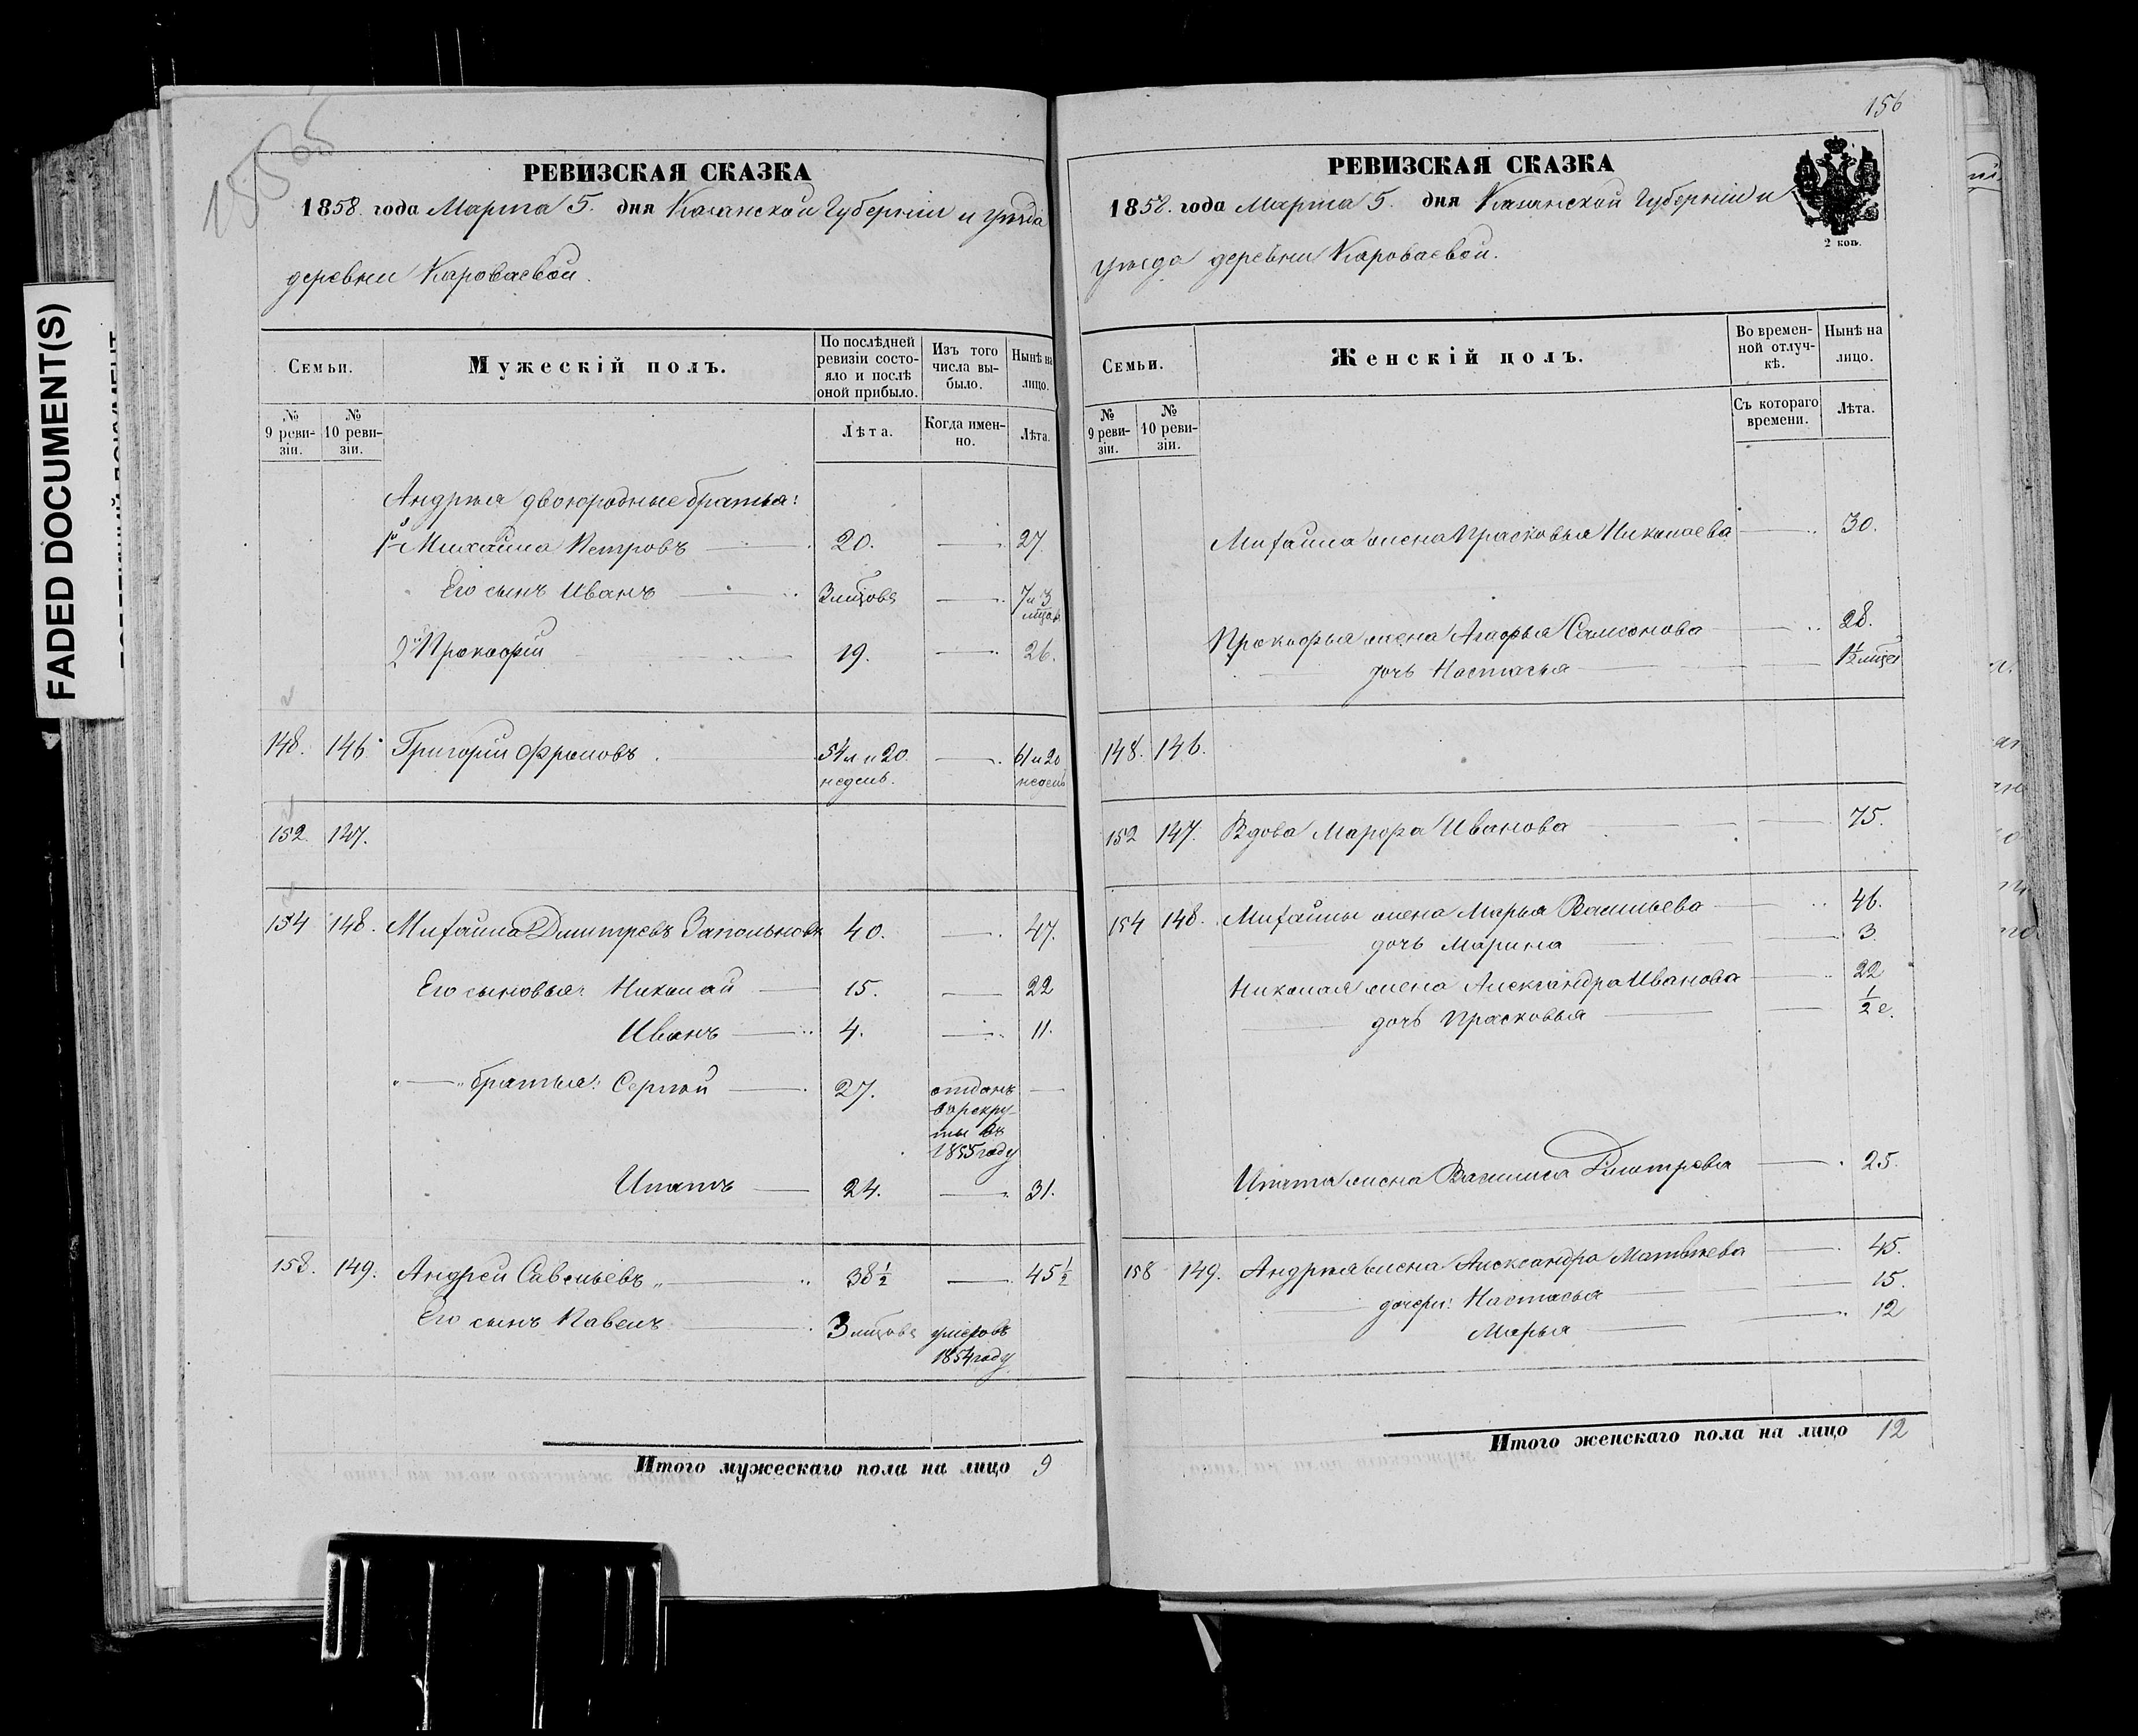 FADED DOCUMENT(S)
155об
РЕВИЗСКАЯ СКАЗКА
1858. года Марта 5. дня Казанской Губерніи и уѣзда
деревни Кароваевой.
Семьи.
Мужескій полъ.
По послѣдней ревизіи состояло и послѣ оной прибыло.
Изъ того числа выбыло.
Нынѣ на лицо.
№ 9 ревизіи.
№ 10 ревизіи.
Лѣта.
Когда именно.
Лѣта.
Андрея двоюродные братья:
1й Михайла Петровъ 20. 27.
Его сынъ Иванъ 3 мѣцовъ 7 и 3 мѣцов
2й Прокофій 19. 26.
148. 146. Григорій Фроловъ 54 л и 20 недель. 61 и 20 недель
152. 147.
154 148. Михайла Дмитревъ 40. 47.
Его сыновья: Николай 15. 22
Иванъ 4. 11.
братья: Сергей 27. отданъ
въ рекру-
ты въ
1855 году
Ипатъ 24. 31.
158. 149. Андрей Савельевъ 38 1/2 45 1/2
Его сынъ Павелъ 3 мѣцовъ умеръ въ
1854 году
Итого мужескаго пола на лицо 9
156
РЕВИЗСКАЯ СКАЗКА
1858. года Марта 5. дня Казанской Губерніи и
2 коп.
уѣзда деревни Кароваевой.
Семьи.
Женскій полъ.
Во временной отлучкѣ.
Нынѣ на лицо.
№ 9 ревизіи.
№ 10 ревизіи.
Съ котораго времени.
Лѣта.
Михайла жена Прасковья Николаева 30.
Прокофья жена Агафья Самсонова 28.
дочь Настасья
148. 146.
152 147. Вдова Марфа Иванова 75.
154 148. Михайлы жена Марья Васильева 46.
дочь Марина 3.
Николая жена Александра Иванова 22
дочь Прасковья 1/2 г.
Ипата жена Василиса Дмитрева 25.
158 149. Андрея жена Александра Матвѣева 45.
дочери: Настасья 15.
Марья 12
Итого женскаго пола на лицо 12